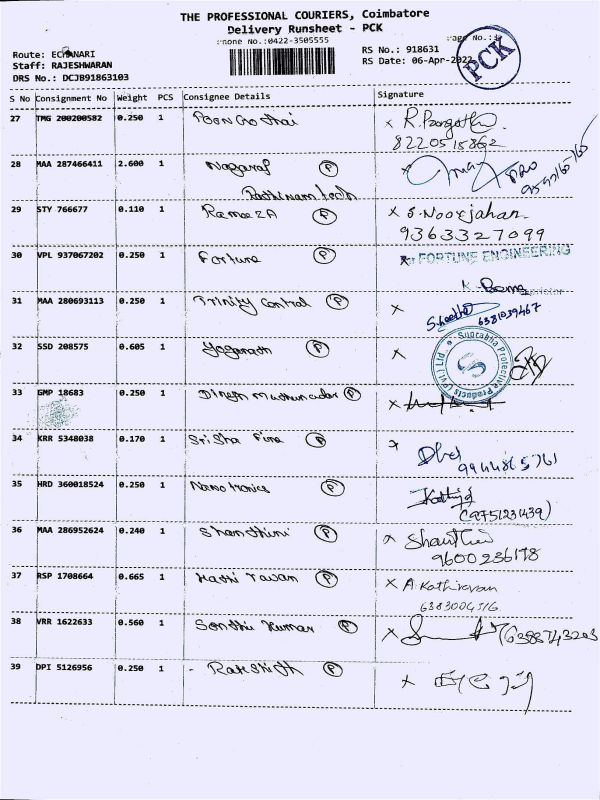 THE PROFESSIONAL COURIERS, Coimbatore
Delivery Runsheet - PCK
Phone No.:0422-3505555
Route: ECHANARI
Staff: RAJESHWARAN
DRS No.: DCJB91863103
RS No.: 918631
RS Date: 06-Apr-2022
PCK
S No Consignment No Weight PCS Consignee Details Signature
27 TMG 200200582 0.250 1 Poongothai x R.
8220515862
28 MAA 287466411 2.600 1 Nagaraj P
Rathinam tech
29 STY 766677 0.110 1 Rameeza P x S. Noorjahan
9363327099
30 VPL 937067202 0.250 1 Fortune P For FORTUNE ENGINEERING
31 MAA 280693113 0.250 1 Trinity Control P x
6381039467
32 SSD 208575 0.605 1 Yoganath P x
Suprabha Protective Products (Pvt) Ltd
33 GMP 18683 0.250 1 Dinesh P x
34 KRR 5348038 0.170 1 Sri Sha Fire P
35 HRD 360018524 0.250 1 Nanotronics P
(9751231439)
36 MAA 286952624 0.240 1 Shanthini P
9600236178
37 RSP 1708664 0.665 1 P x A. Kathiravan
6383004516
38 VRR 1622633 0.560 1 Senthil Kumar P x (6388743203
39 DPI 5126956 0.250 1 - Rakshith P x